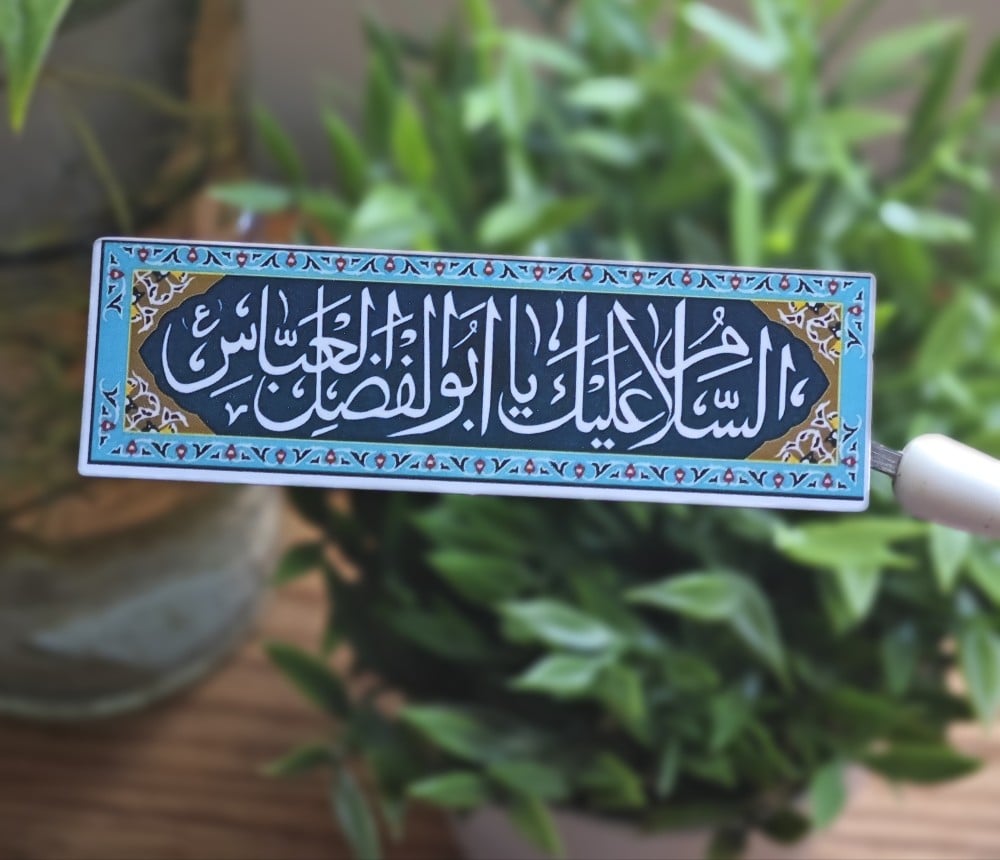 السلام عليك يا ابوالفضل العباس ع